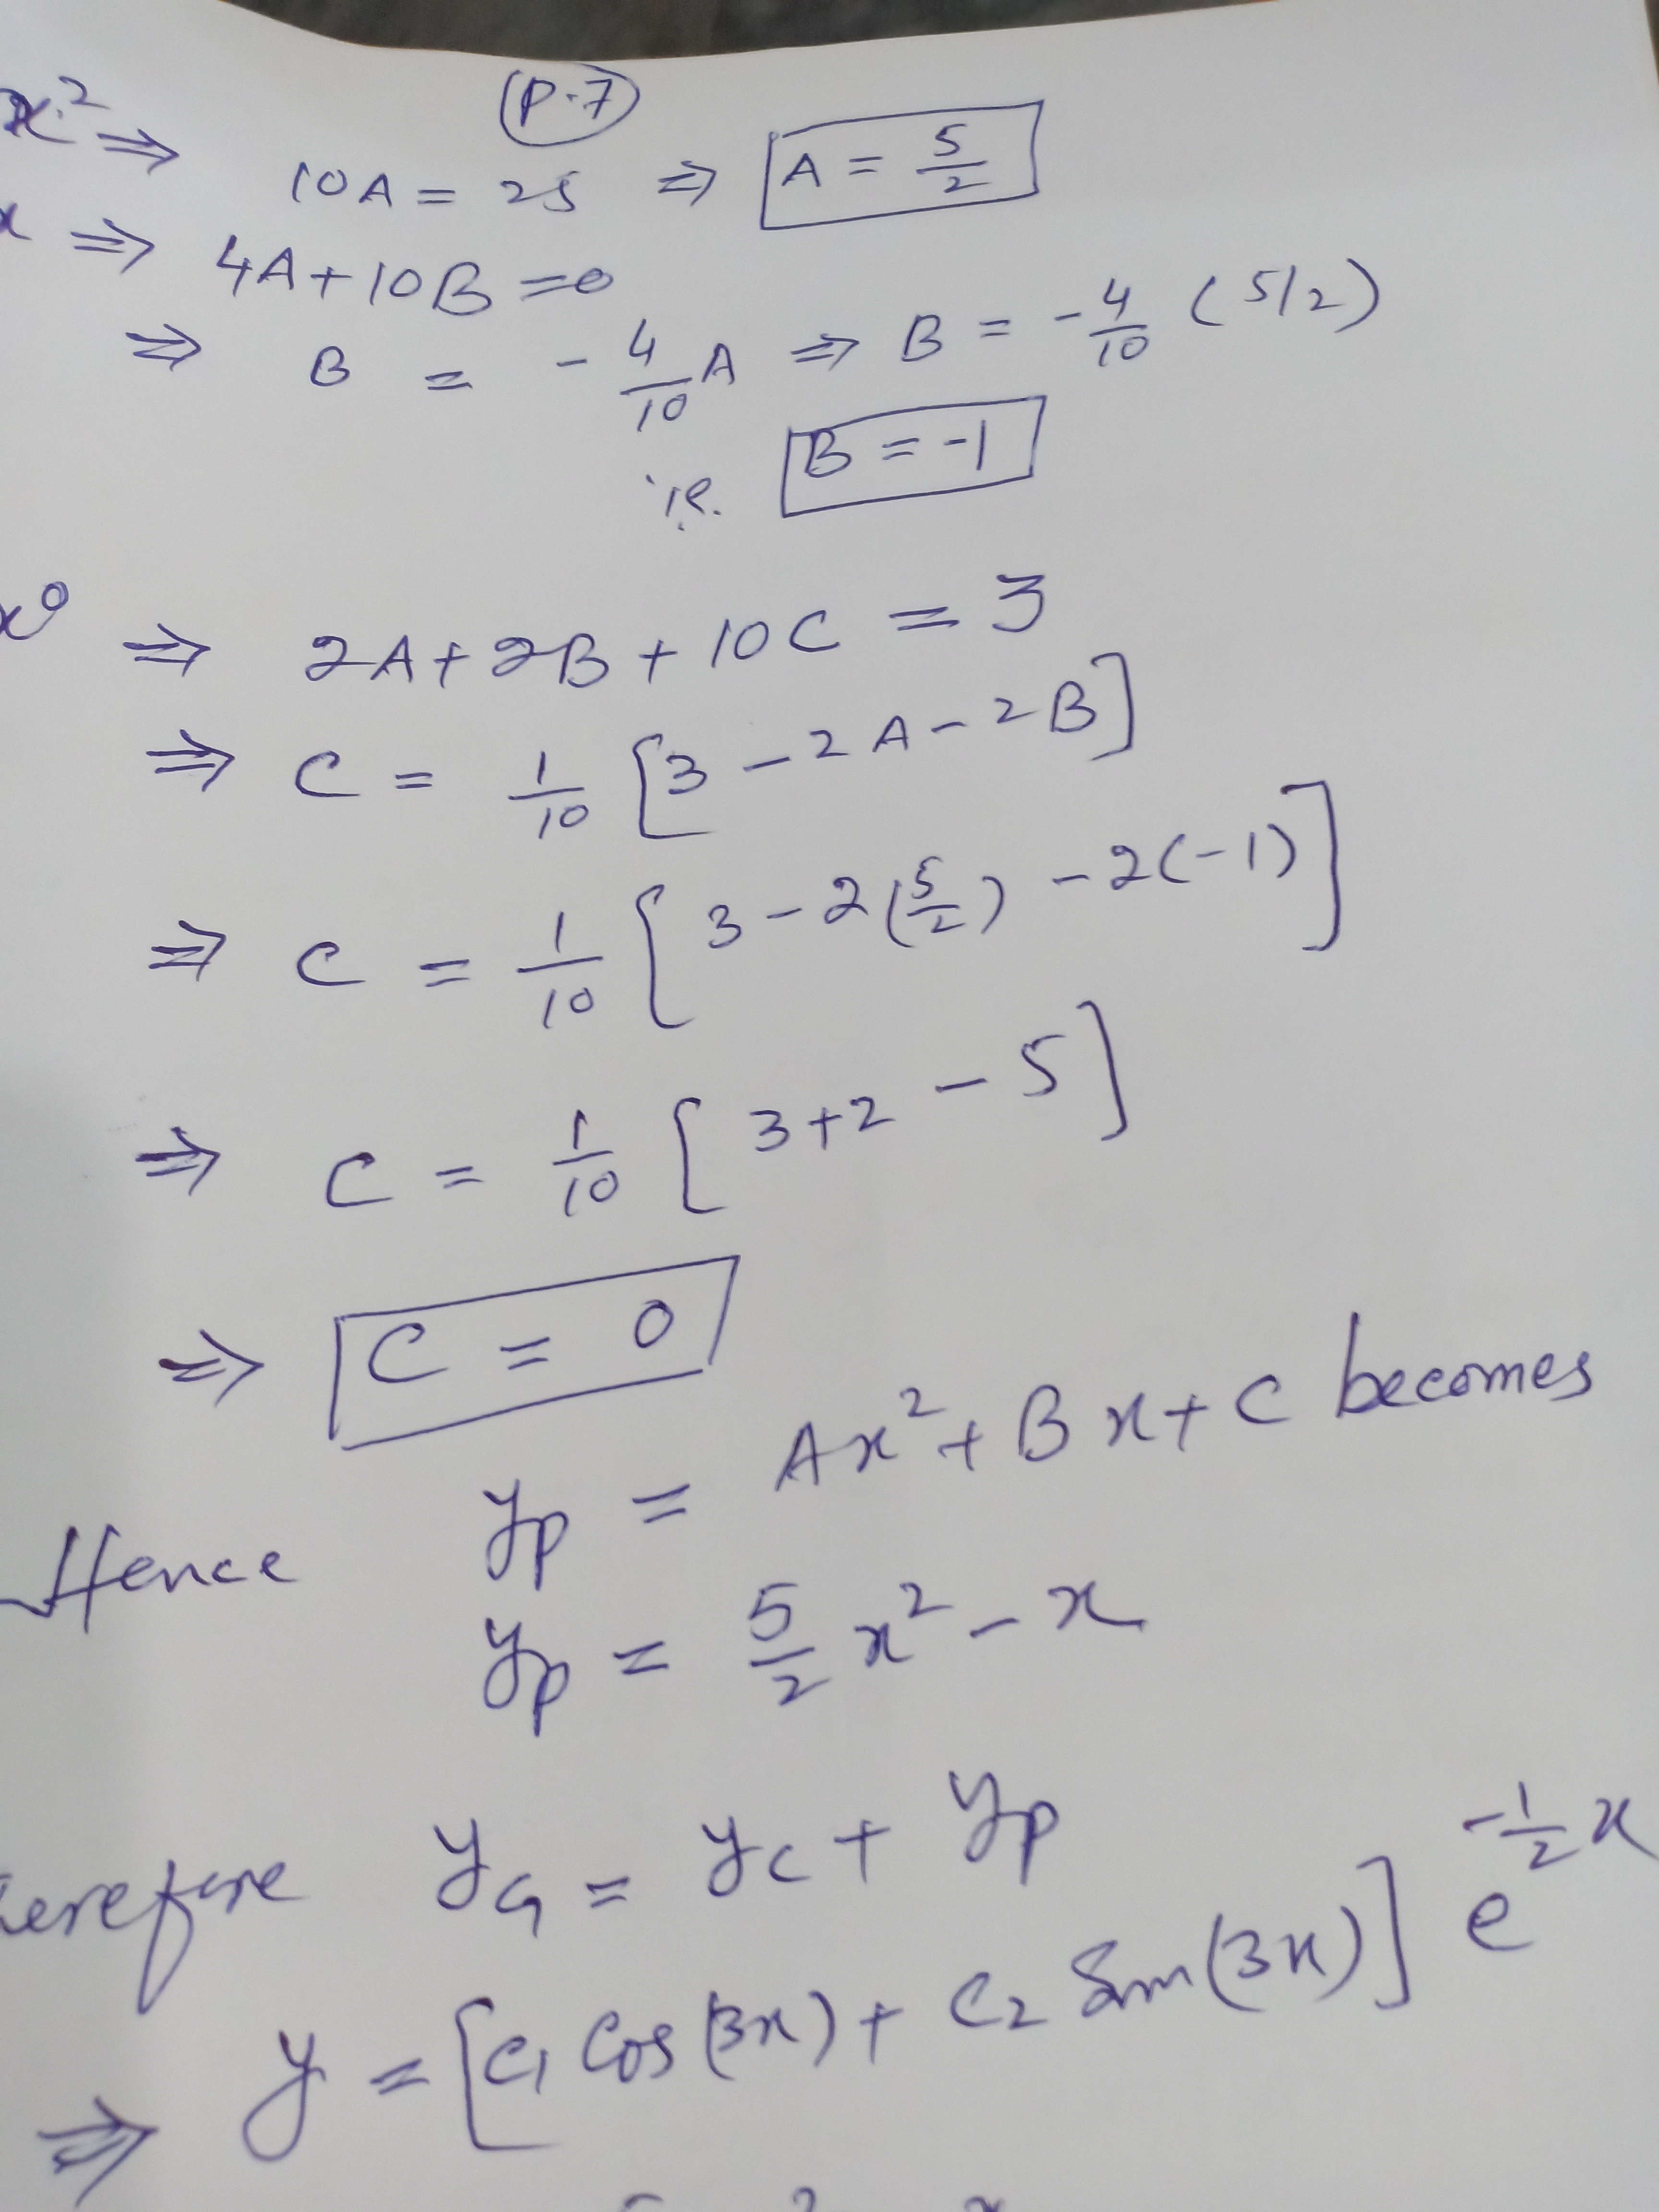 (P.7)
x² ⇒ 10A = 25 ⇒ A = 5/2
x ⇒ 4A + 10B = 0
⇒ B = - 4/10 A ⇒ B = - 4/10 (5/2)
i.e. B = -1
x⁰ ⇒ 2A + 2B + 10C = 3
⇒ C = 1/10 [3 - 2A - 2B]
⇒ C = 1/10 [3 - 2(5/2) - 2(-1)]
⇒ C = 1/10 [3+2 - 5]
⇒ C = 0
Hence yp = Ax² + Bx + C becomes
yp = 5/2 x² - x
erefore yG = yc + yp
⇒ y = [C1 Cos(3x) + C2 Sin(3x)] e^(-1/2 x)